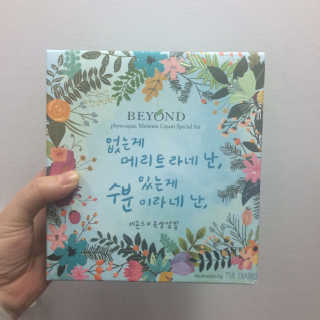 BEYOND
phytoaqua Moisture Cream Special Set
없는게
메리트라네 난,
있는게
수분 이라네 난,
비욘드 X 옥상달빛
Illustration by